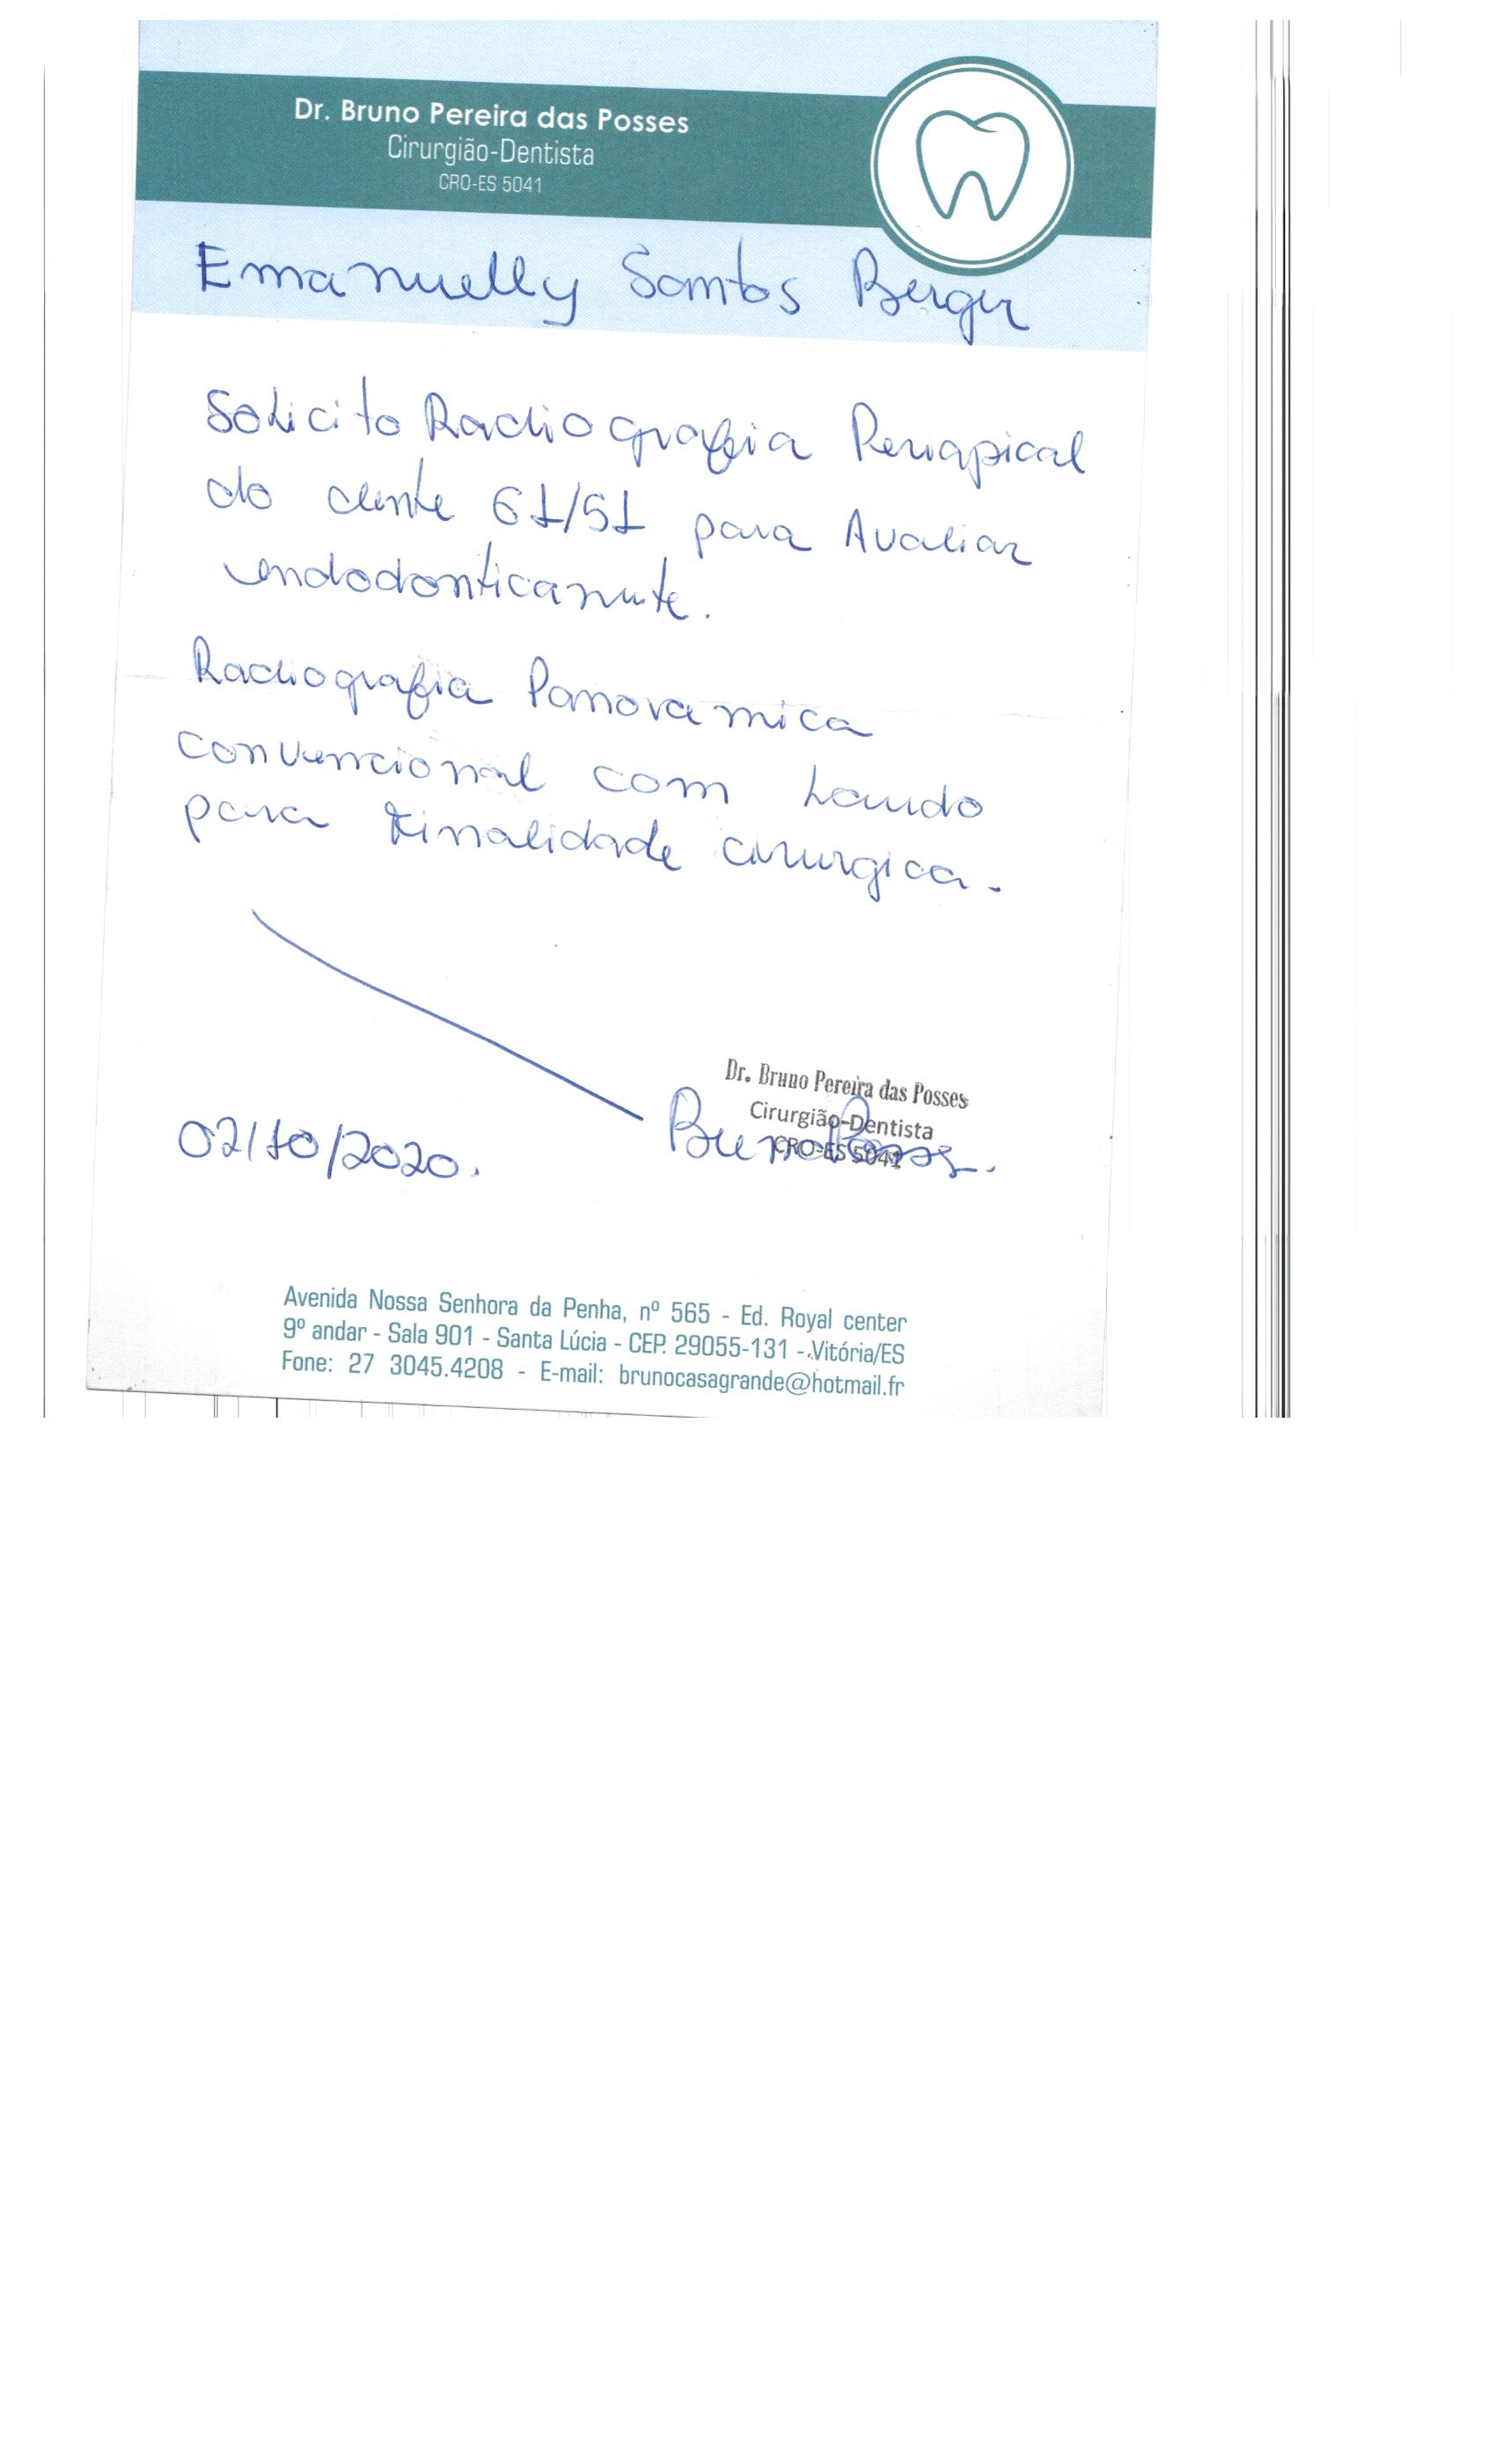 Dr. Bruno Pereira das Posses
Cirurgião-Dentista
CRO-ES 5041
Emanuelly Santos Berger
Solicito Radiografia Periapical
do dente 61/51 para Avaliar
endodonticamente.
Radiografia Panoramica
convencional com Laudo
para Finalidade cirurgica.
Dr. Bruno Pereira das Posses
Cirurgião-Dentista
CRO-ES 5041
Bruno Posses.
02/10/2020.
Avenida Nossa Senhora da Penha, nº 565 - Ed. Royal center
9º andar - Sala 901 - Santa Lúcia - CEP. 29055-131 - Vitória/ES
Fone: 27 3045.4208 - E-mail: brunocasagrande@hotmail.fr